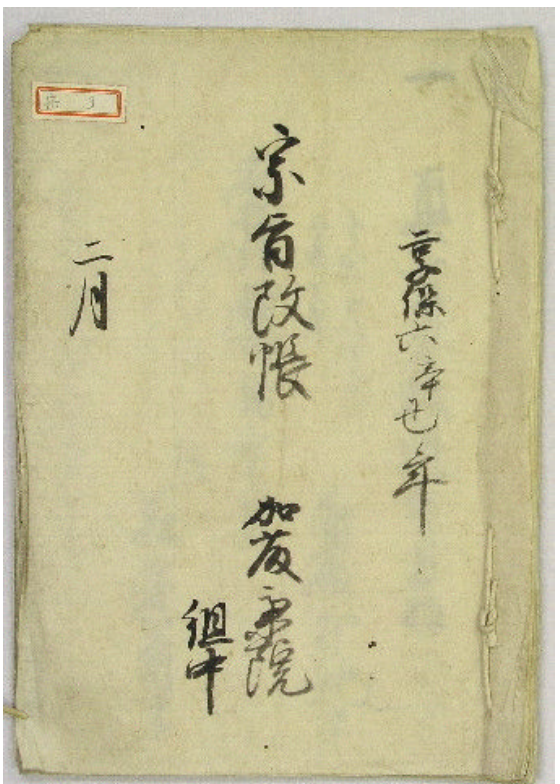 享保六辛丑年
宗旨改帳
加茂
院
組中
二月